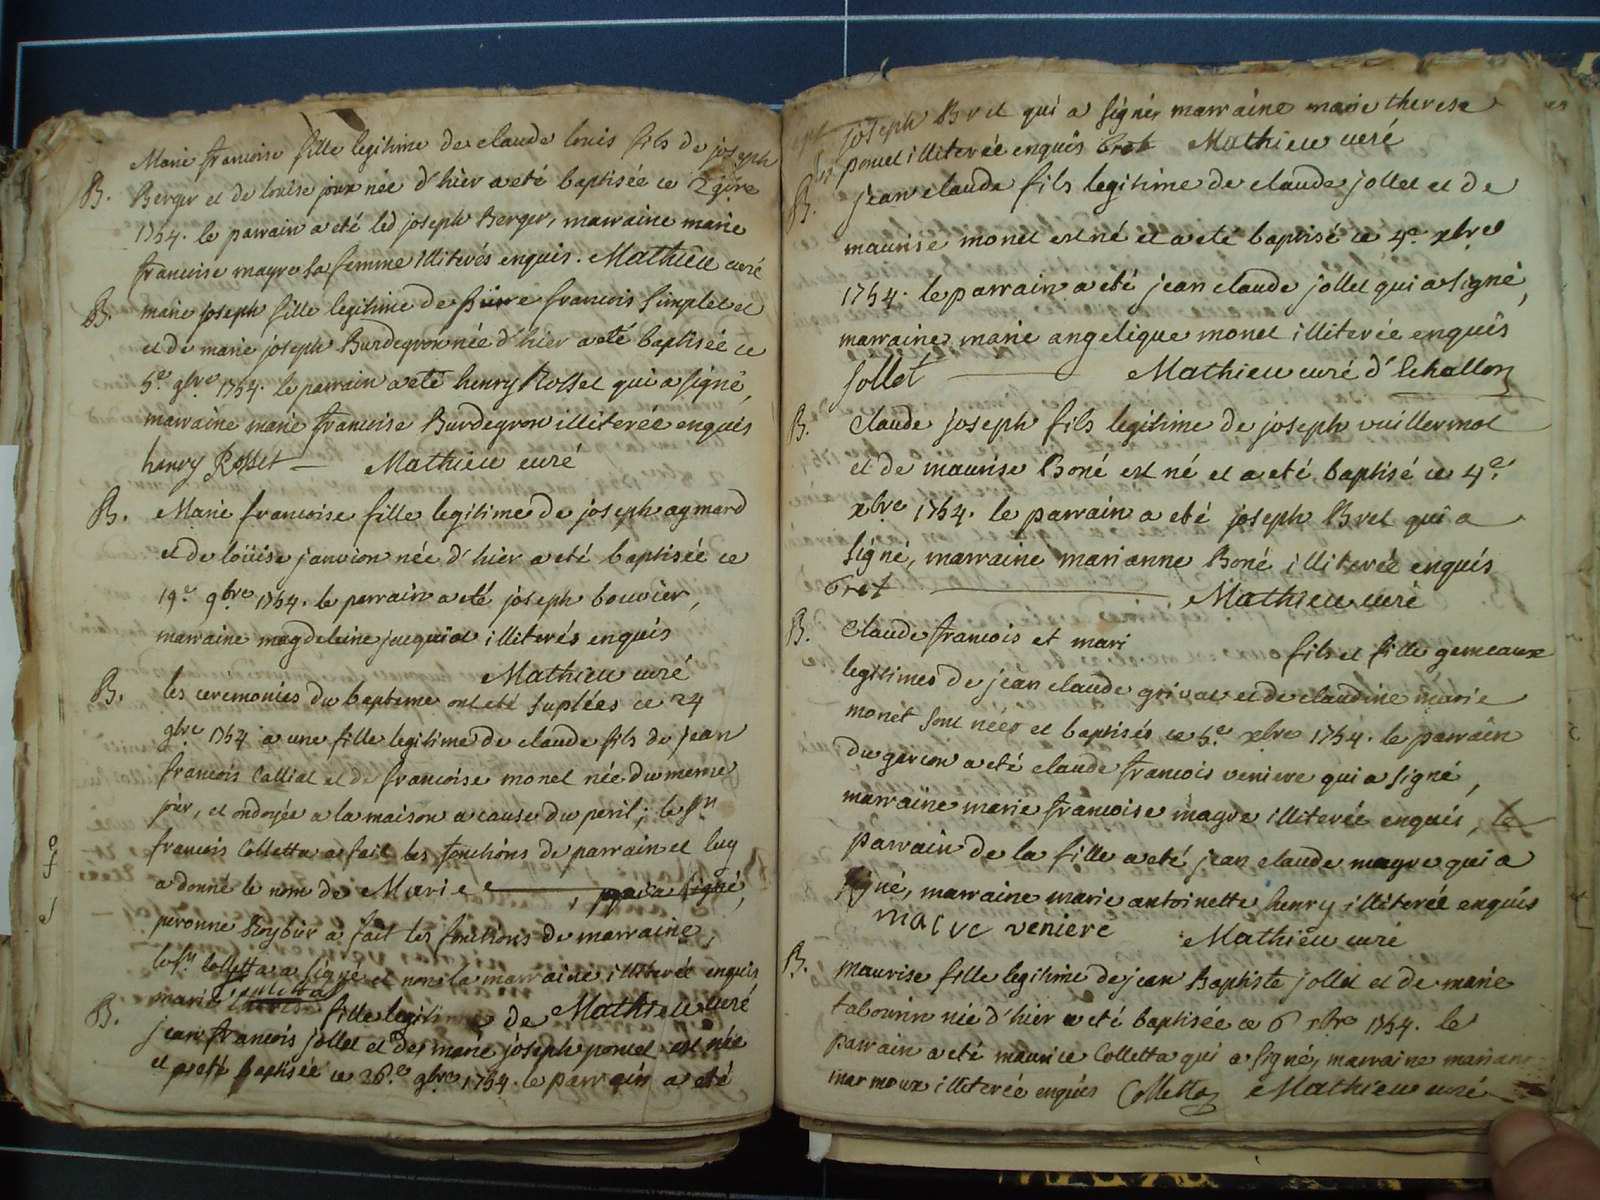 Marie francoise fille legitime de claude louis fils de joseph
B. Berger et de louise joux née d'hier a eté baptisée ce 2 9bre
1754. le parrain a eté led joseph Berger, marraine marie
francoise magre sa femme illiterés enquis. Mathieu curé
B. marie joseph fille legitime de pierre francois Simplet et
et de marie joseph Burdeyron née d'hier a eté baptisée ce
5e 9bre 1754. le parrain a eté henry Rosset qui a signé,
marraine marie francoise Burdeyron illiterée enquis
henry Rosset — Mathieu curé
B. Marie francoise fille legitime de joseph aymard
et de loüise janvion née d'hier a eté baptisée ce
19e 9bre 1754. le parrain a eté joseph bouvier,
marraine magdeleine jacquiot illiterés enquis
Mathieu curé
B. les cerémonies du bapteme ont eté supleés ce 24
9bre 1754 a une fille legitime de claude fils de jean
francois Calliat et de francoise monet née du meme
jour, et ondoyée a la maison a cause du peril; le Sr
francois Colletta a fait les fonctions de parrain et luy
a donné le nom de Marie, qui a signé,
peronne a fait les fonctions de marraine,
le sr Colletta a signé et non la marraine illiterée enquis
colletta
B. marie fille legitime de Mathieu curé
jean francois jollet et de marie joseph poncet est née
et a eté baptisée ce 26e 9bre 1754. le parrain a eté
joseph Bret qui a signé, marraine marie therese
poncet illiterée enquis bret Mathieu curé
B. jean claude fils legitime de claude jollet et de
maurise monet est né et a eté baptisé ce 4e xbre
1754. le parrain a eté jean claude jollet qui a signé,
marraine marie angelique monet illiterée enquis
Jollet — Mathieu curé d'Echallon
B. Claude joseph fils legitime de joseph vuillermot
et de maurise Boné est né et a eté baptisé ce 4e
xbre 1754. le parrain a eté joseph Bret qui a
signé, marraine marianne Boné illiterée enquis
bret — Mathieu curé
B. Claude francois et mari fils et fille gemeaux
legitimes de jean claude grivat et de claudine marie
monet sont nées et baptisés ce 5e xbre 1754. le parrain
du garcon a eté claude francois veniere qui a signé,
marraine marie francoise magre illiterée enquis, le
parrain de la fille a eté jean claude magre qui a
signé, marraine marie antoinette henry illiterée enquis
macre veniere Mathieu curé
B. maurise fille legitime de jean Baptiste jollet et de marie
tabourin née d'hier a eté baptisée ce 6 xbre 1754. le
parrain a eté maurice Colletta qui a signé, marraine mariane
marmoux illiterée enquis Colletta Mathieu curé